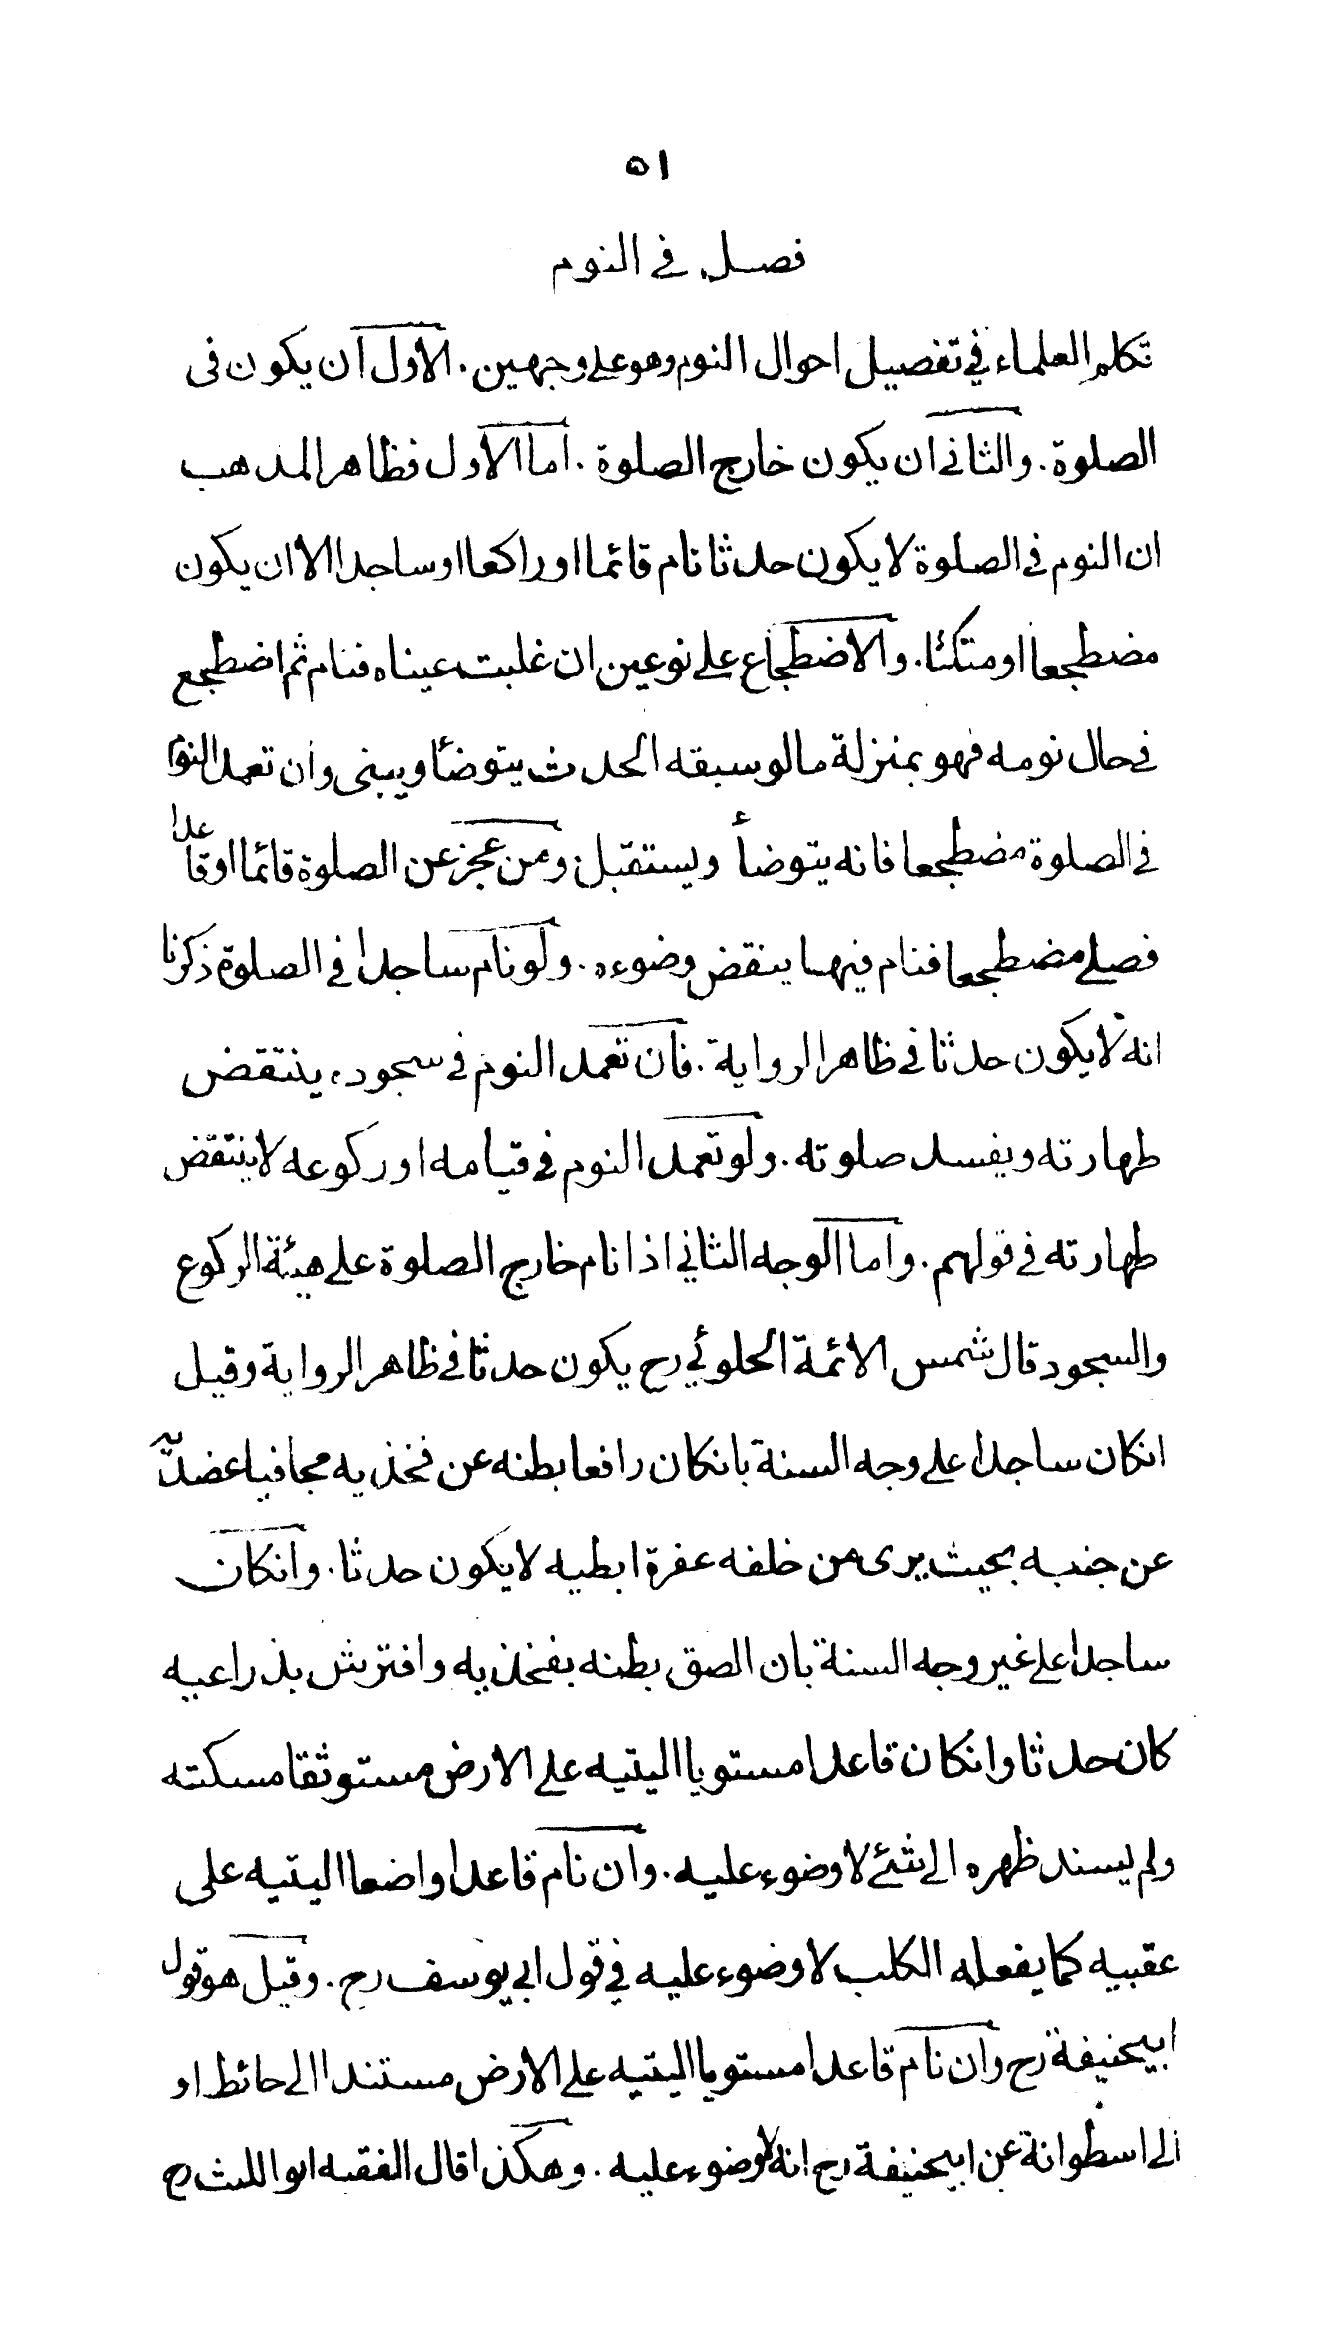 ٥١
فصل في النوم
تكلم العلماء في تفصيل احوال النوم وهو على وجهين . الاول ان يكون فى
الصلوة . والثانى ان يكون خارج الصلوة . اما الاول فظاهر المذهب
ان النوم فى الصلوة لا يكون حدثا نام قائما او راكعا او ساجدا الا ان يكون
مضطجعا او متكئا . والاضطجاع على نوعين ان غلبت عيناه فنام ثم اضطجع
في حال نومه فهو بمنزلة ما لو سبقه الحدث يتوضأ ويبنى وان تعمد النوم
في الصلوة مضطجعا فانه يتوضأ ويستقبل ومن عجز عن الصلوة قائما او قاعدا
فصلى مضطجعا فنام فيها ينقض وضوءه . ولو نام ساجدا في الصلوة ذكرنا
انه لا يكون حدثا في ظاهر الرواية . فان تعمد النوم في سجوده ينتقض
طهارته ويفسد صلوته . ولو تعمد النوم في قيامه او ركوعه لا ينتقض
طهارته في قولهم . واما الوجه الثاني اذا نام خارج الصلوة على هيئة الركوع
والسجود قال شمس الائمة الحلوائي رح يكون حدثا في ظاهر الرواية وقيل
انكان ساجدا على وجه السنة بانكان رافعا بطنه عن فخذيه مجافيا عضديه
عن جنبه بحيث يرى من خلفه عفرة ابطيه لا يكون حدثا . وانكان
ساجدا على غير وجه السنة بان الصق بطنه بفخذيه وافترش بذراعيه
كان حدثا وانكان قاعدا مستويا اليتيه على الارض مستوثقا مسكته
ولم يسند ظهره الى شئ لا وضوء عليه . وان نام قاعدا واضعا اليتيه على
عقبيه كما يفعله الكلب لا وضوء عليه في قول ابي يوسف رح . وقيل هو قول
ابيحنيفة رح وان نام قاعدا مستويا اليتيه على الارض مستندا الى حائط او
الى اسطوانة عن ابيحنيفة رح انه لا وضوء عليه . وهكذا قال الفقيه ابو الليث رح